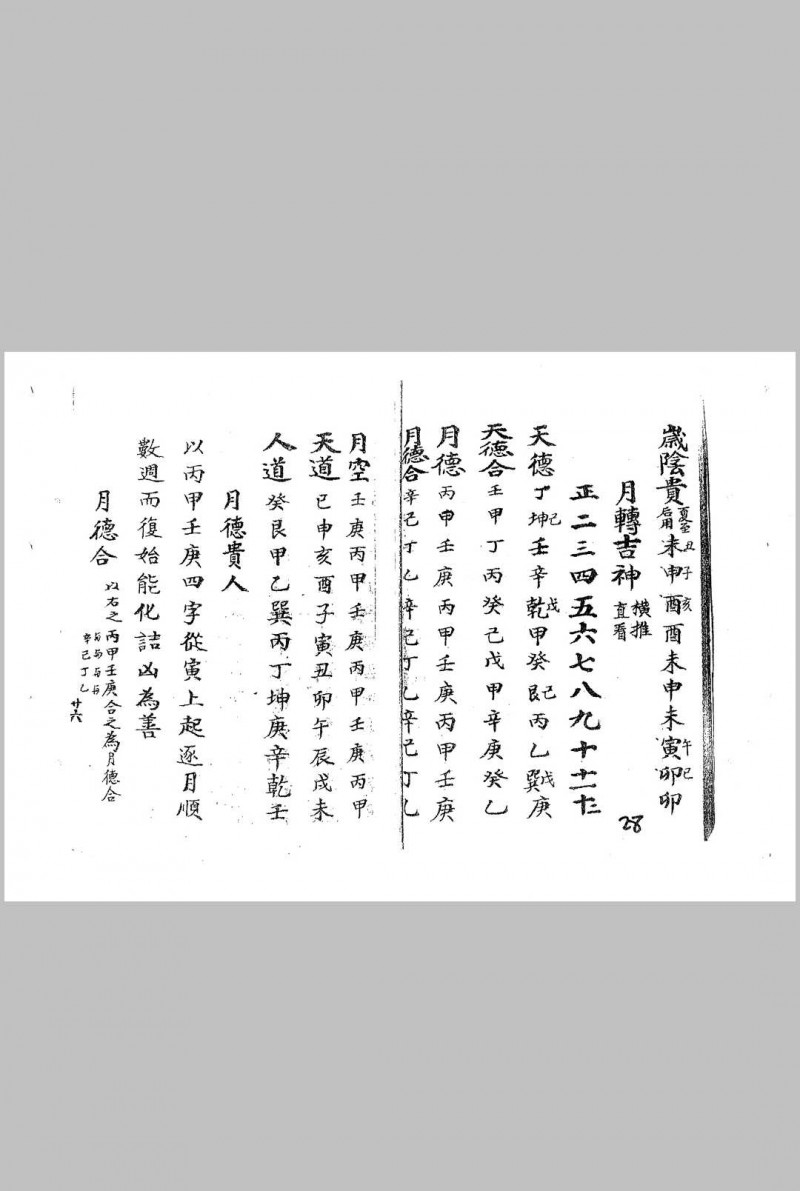 歲陰貴夏至后用未申酉酉未申未寅卯卯
丑子亥午巳
月轉吉神橫推直看
正二三四五六七八九十十一十二
天德丁坤壬辛乾甲癸艮丙乙巽庚
己戊己戊
天德合壬甲丁丙癸己戊甲辛庚癸乙
月德丙甲壬庚丙甲壬庚丙甲壬庚
月德合辛己丁乙辛己丁乙辛己丁乙
28
月空壬庚丙甲壬庚丙甲壬庚丙甲
天道巳申亥酉子寅丑卯午辰戌未
人道癸艮甲乙巽丙丁坤庚辛乾壬
月德貴人
以丙甲壬庚四字從寅上起逐月順
數週而復始能化詰凶為善
月德合以右之丙甲壬庚合之為月德合
与与与与
辛己丁乙
廿六